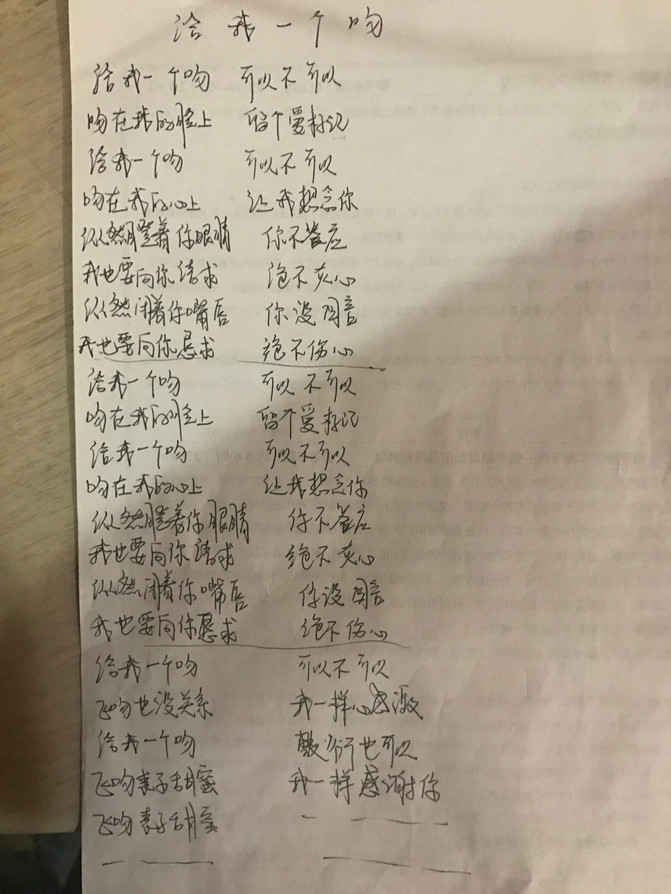 给我一个吻
给我一个吻 可以不可以
吻在我的脸上 留个爱标记
给我一个吻 可以不可以
吻在我的心上 让我想念你
纵然瞪着你眼睛 你不答应
我也要向你请求 绝不灰心
纵然闭着你嘴唇 你没回音
我也要向你恳求 绝不伤心
给我一个吻 可以不可以
吻在我的脸上 留个爱标记
给我一个吻 可以不可以
吻在我的心上 让我想念你
纵然瞪着你眼睛 你不答应
我也要向你请求 绝不灰心
纵然闭着你嘴唇 你没回音
我也要向你恳求 绝不伤心
给我一个吻 可以不可以
飞吻也没关系 我一样心感激
给我一个吻 敷衍也可以
飞吻表示甜蜜 我一样感谢你
飞吻表示甜蜜